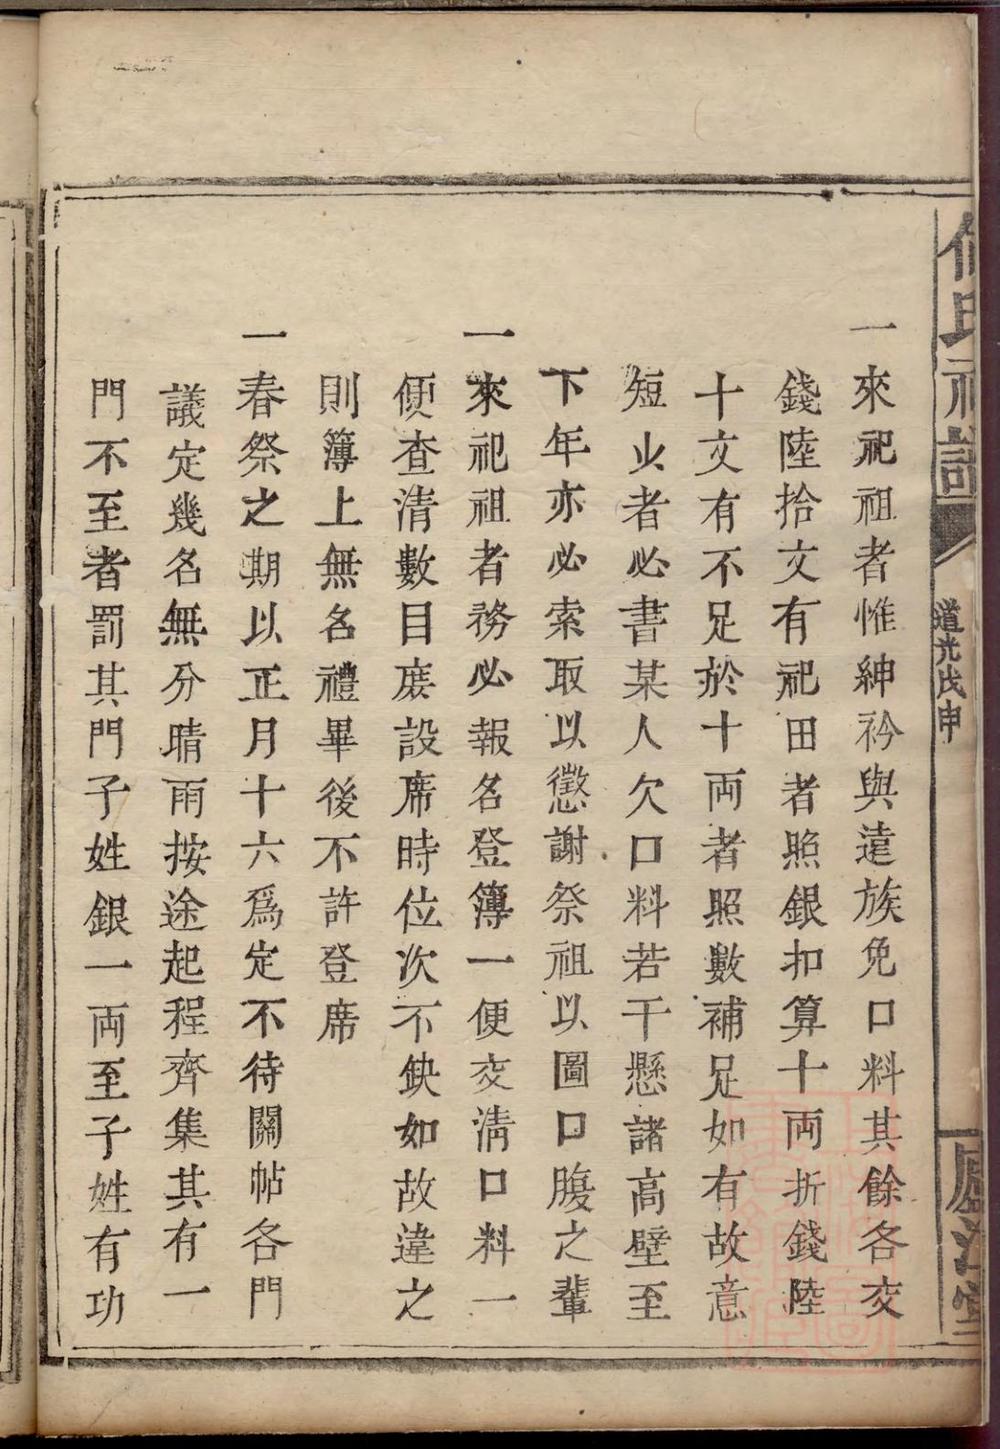 何氏祀譜
道光戊申
廬江堂
一來祀祖者惟紳衿與遠族免口料其餘各交
錢陸拾文有祀田者照銀扣算十両折錢陸
十文有不足於十両者照數補足如有故意
短少者必書某人欠口料若干懸諸高壁至
下年亦必索取以懲謝祭祖以圖口腹之輩
一來祀祖者務必報名登簿一便交清口料一
便查清數目庻設席時位次不缺如故違之
則簿上無名禮畢後不許登席
一春祭之期以正月十六爲定不待關帖各門
議定幾名無分晴雨按途起程齊集其有一
門不至者罰其門子姓銀一両至子姓有功